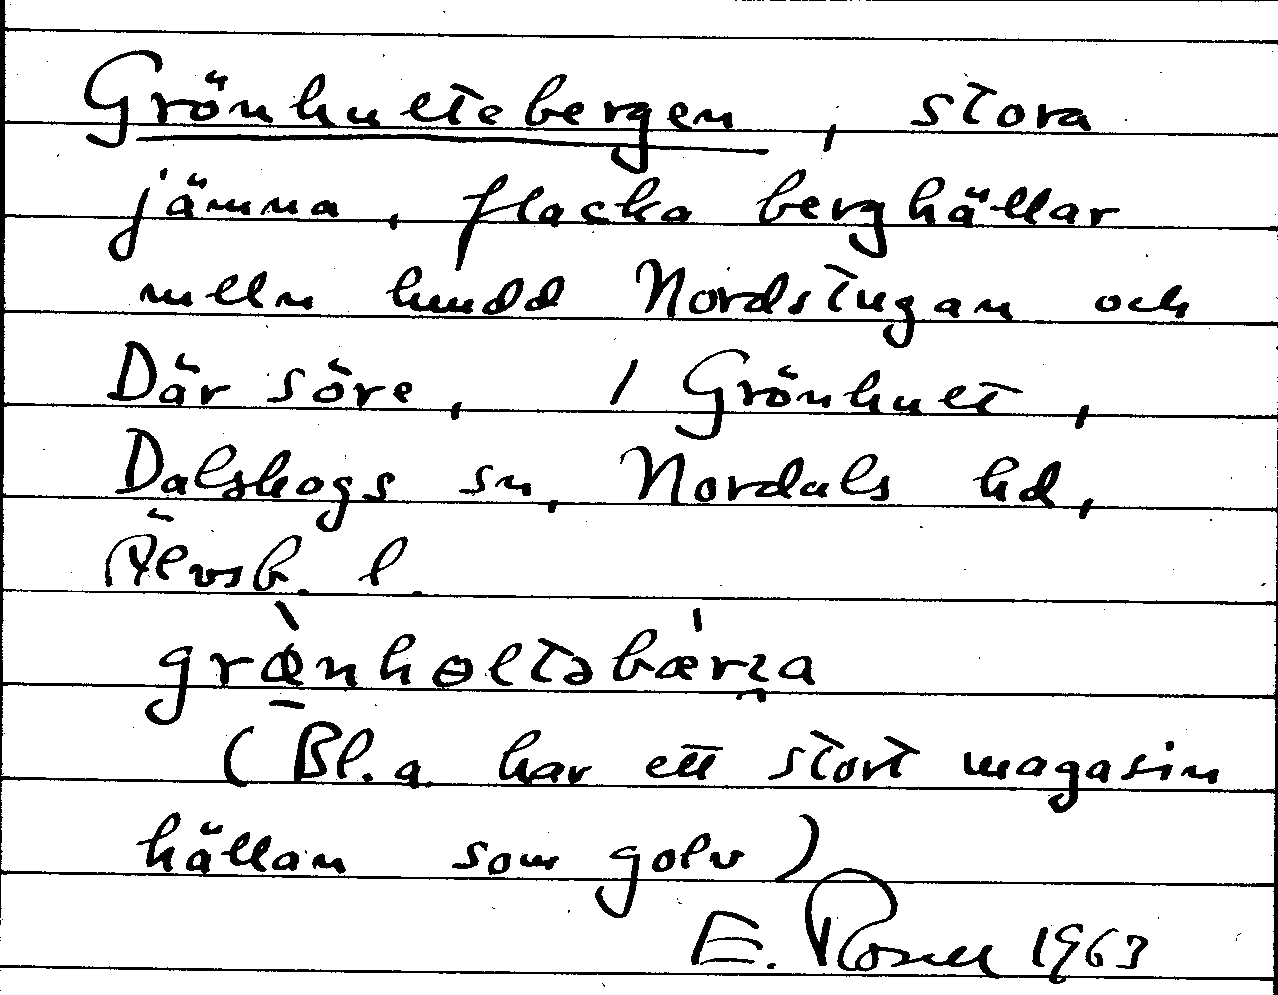 Grönhultebergen, stora
jämna, flacka berghällar
melln hmdd Nordstugan och
Där söre, / Grönhult,
Dalskogs sn, Nordals hd,
Älvsb. l.
græ̀nhɵltəbǽrɩa
(Bl.a. har ett stort magasin
hällan som golv)
E. Rosell 1963